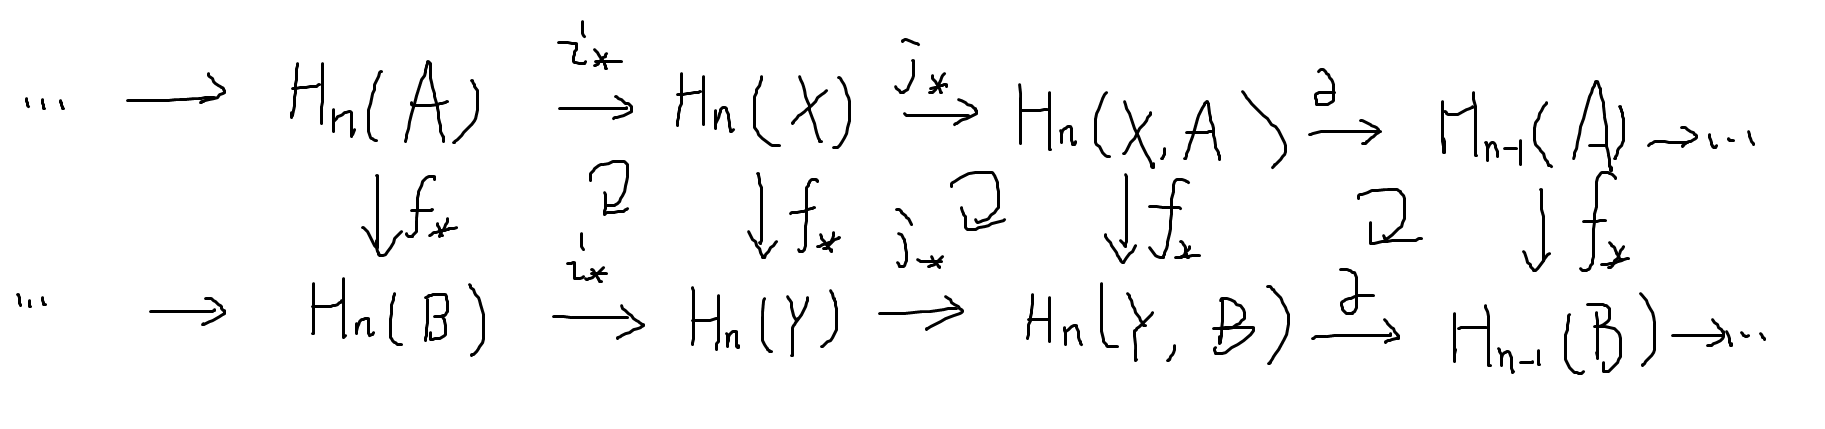 ... → Hₙ(A) →^{i_*} Hₙ(X) →^{j_*} Hₙ(X, A) →^{∂} Hₙ₋₁(A) → ...
↓ f_* ↻ ↓ f_* ↻ ↓ f_* ↻ ↓ f_*
... → Hₙ(B) →^{i_*} Hₙ(Y) →^{j_*} Hₙ(Y, B) →^{∂} Hₙ₋₁(B) → ...